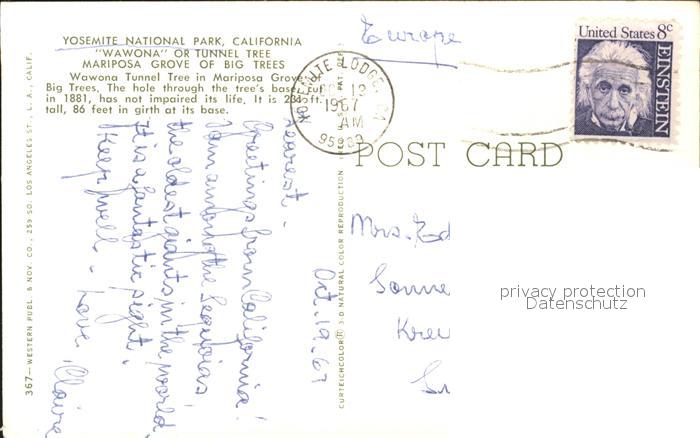 YOSEMITE NATIONAL PARK, CALIFORNIA
"WAWONA" OR TUNNEL TREE
MARIPOSA GROVE OF BIG TREES
Wawona Tunnel Tree in Mariposa Grove
Big Trees. The hole through the tree's base, cut
in 1881, has not impaired its life. It is 231 ft.
tall, 86 feet in girth at its base.
Europe
United States 8c
EINSTEIN
LODGE, CA
13
1967
AM
POST CARD
Oct. 19. 67
Dearest.
Greetings from California!
I am among the Sequoias
the oldest giants in the world.
It is a fantastic sight.
Keep well. Love, Claire
Mrs. Ed
privacy protection
Datenschutz
367—WESTERN PUBL. & NOV. CO., 259 SO. LOS ANGELES ST., L. A., CALIF.
CURTEICHCOLOR® 3-D NATURAL COLOR REPRODUCTION